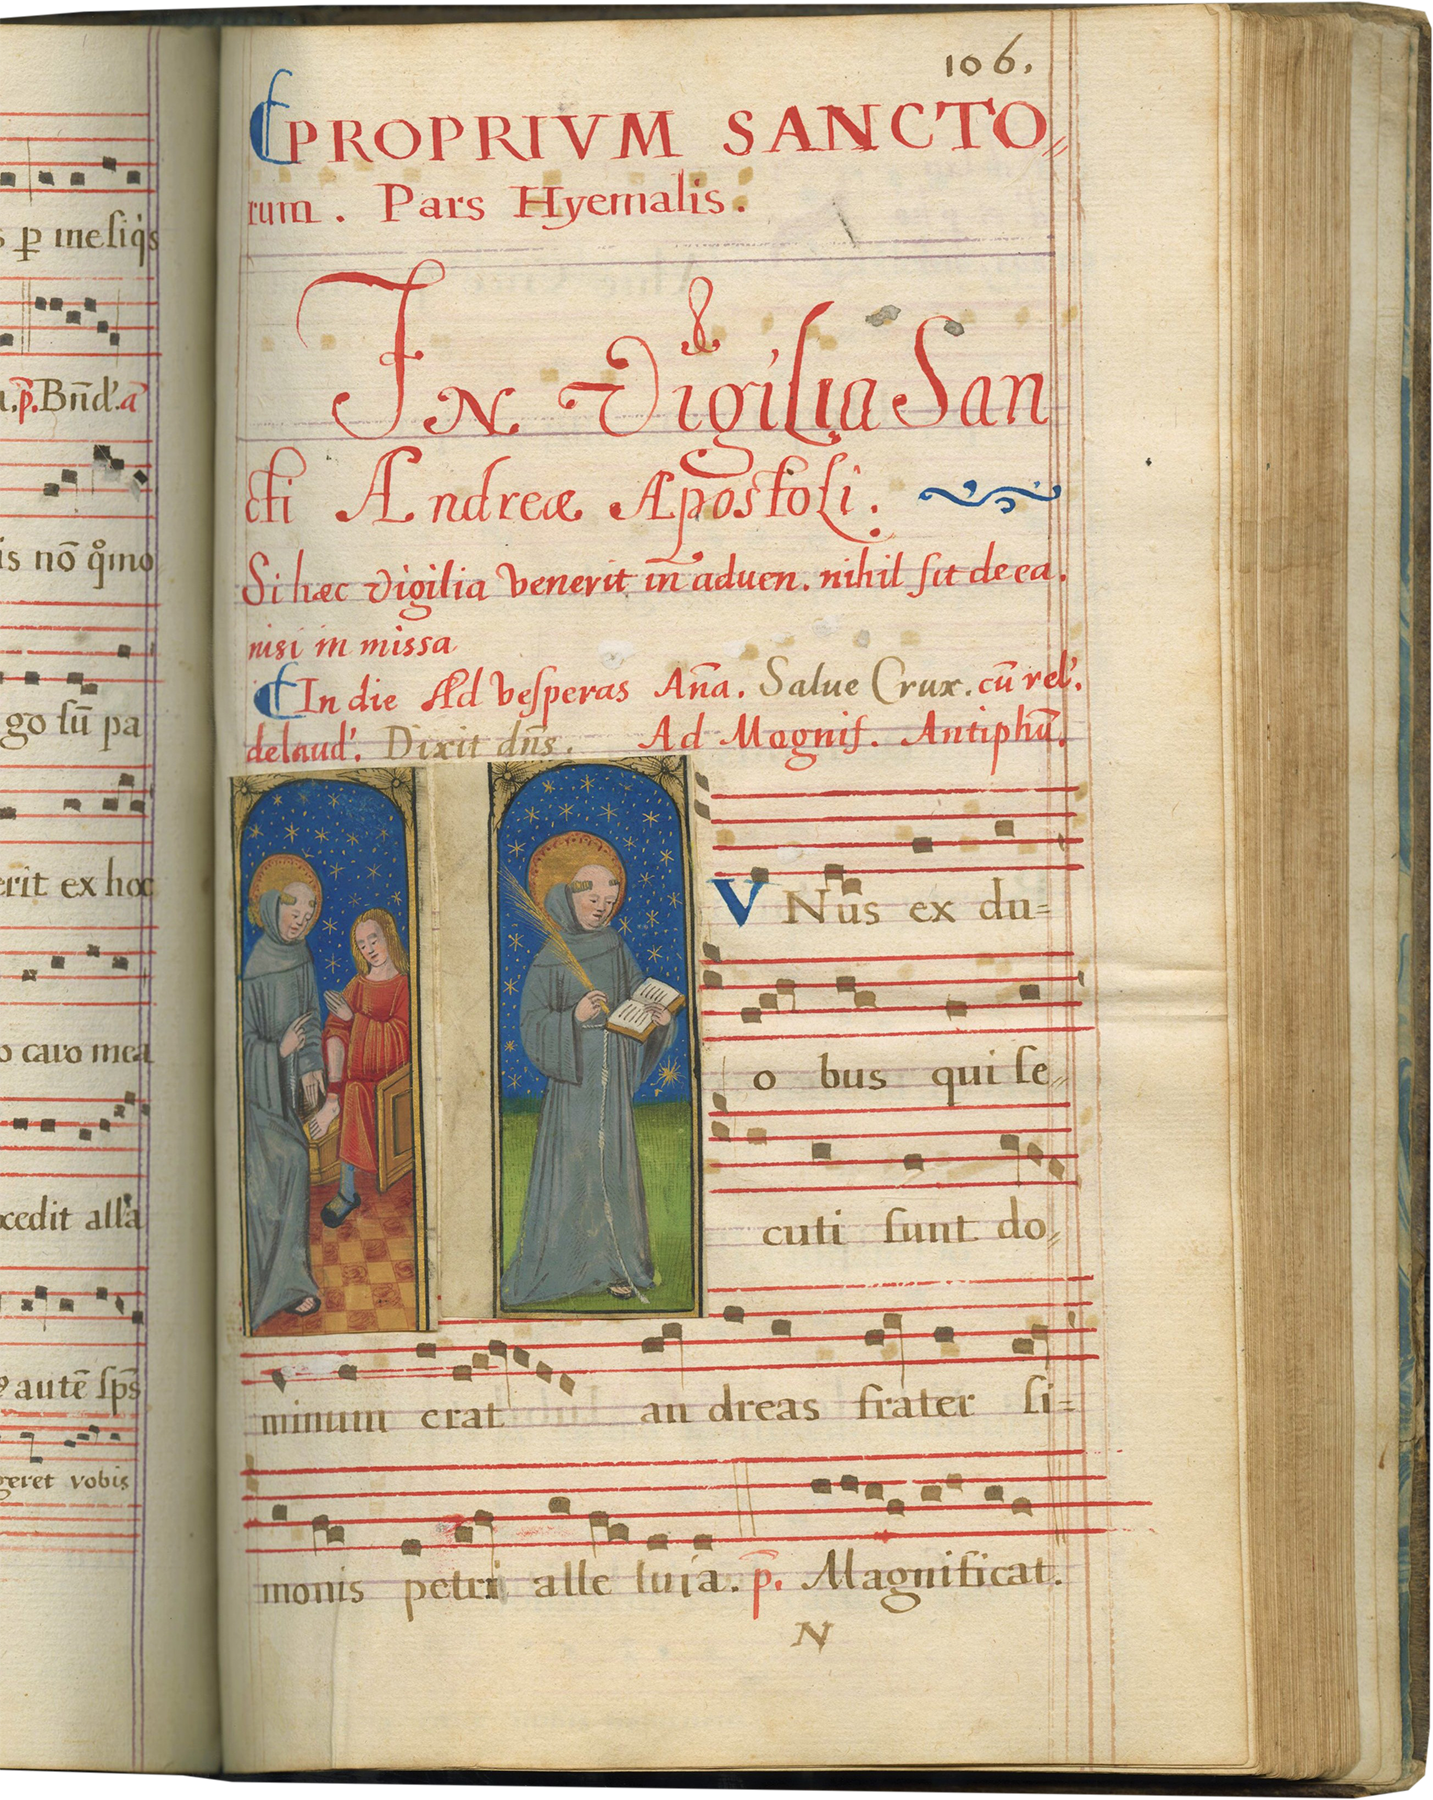 s ꝑ meſiq̃s
p̃. Bñd'. a
is nō q̊mo
go ſũ pa
erit ex hoc
o caro mea
cedit alla
autẽ ſp̃s
geret vobis
106.
PROPRIVM SANCTO//
rum. Pars Hyemalis.
IN Vigilia San
cti Andreæ Apostoli.
Si hæc vigilia venerit in aduen. nihil ſit de ea.
nisi in missa
In die Ad veſperas Aña. Salue Crux. cū rel'.
delaud'. Dixit dñs. Ad Magnif. Antiphū.
VNus ex du=
o bus qui ſe//
cuti ſunt do//
minum erat an dreas frater ſi=
monis petri alle luia. p̃. Magnificat.
N